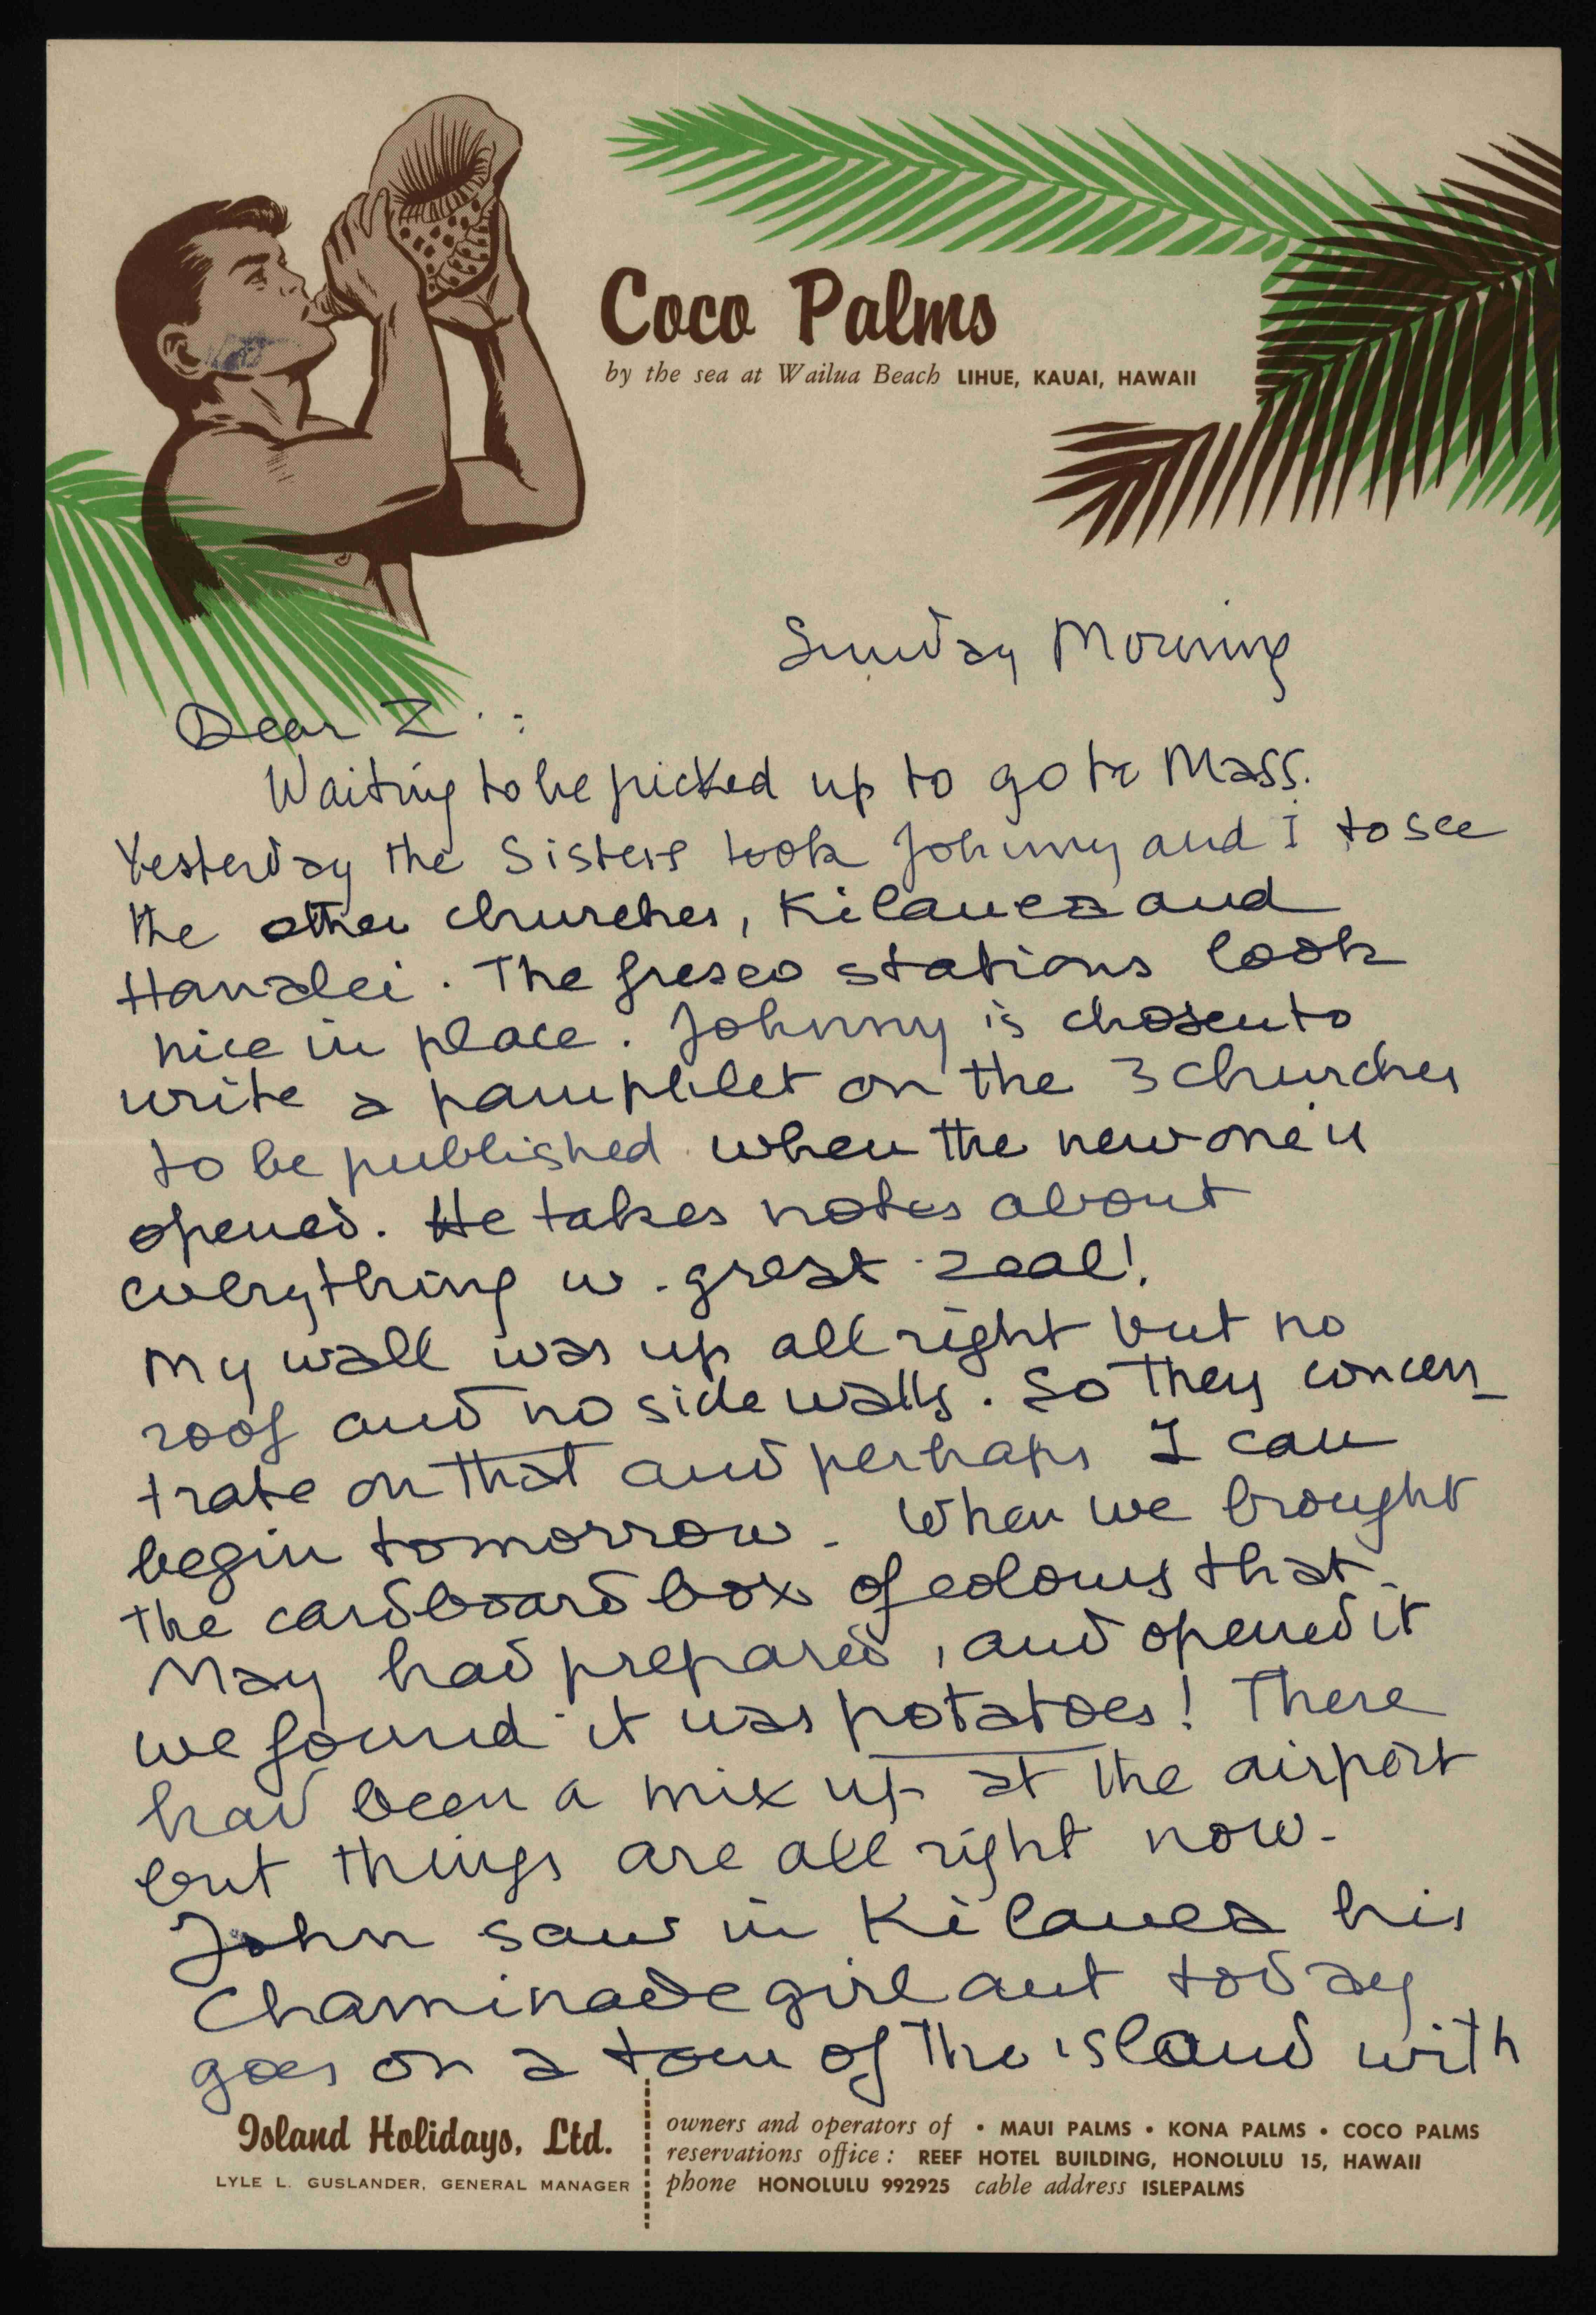 Coco Palms
by the sea at Wailua Beach LIHUE, KAUAI, HAWAII
Sunday Morning
Dear Z . :
Waiting to be picked up to go to Mass.
Yesterday the Sisters took Johnny and I to see
the other churches, Kilauea and
Hanalei. The fresco stations look
nice in place. Johnny is chosen to
write a pamphlet on the 3 churches
to be published when the new one is
opened. He takes notes about
everything w. great zeal!
My wall was up all right but no
roof and no side walls. So they concen
trate on that and perhaps I can
begin tomorrow. When we brought
the cardboard box of colours that
May had prepared, and opened it
we found it was potatoes! There
had been a mix up at the airport
but things are all right now.
John saw in Kilauea his
Chaminade girl aut today
goes on a tour of the island with
Island Holidays, Ltd.
LYLE L. GUSLANDER, GENERAL MANAGER
owners and operators of • MAUI PALMS • KONA PALMS • COCO PALMS
reservations office: REEF HOTEL BUILDING, HONOLULU 15, HAWAII
phone HONOLULU 992925 cable address ISLEPALMS